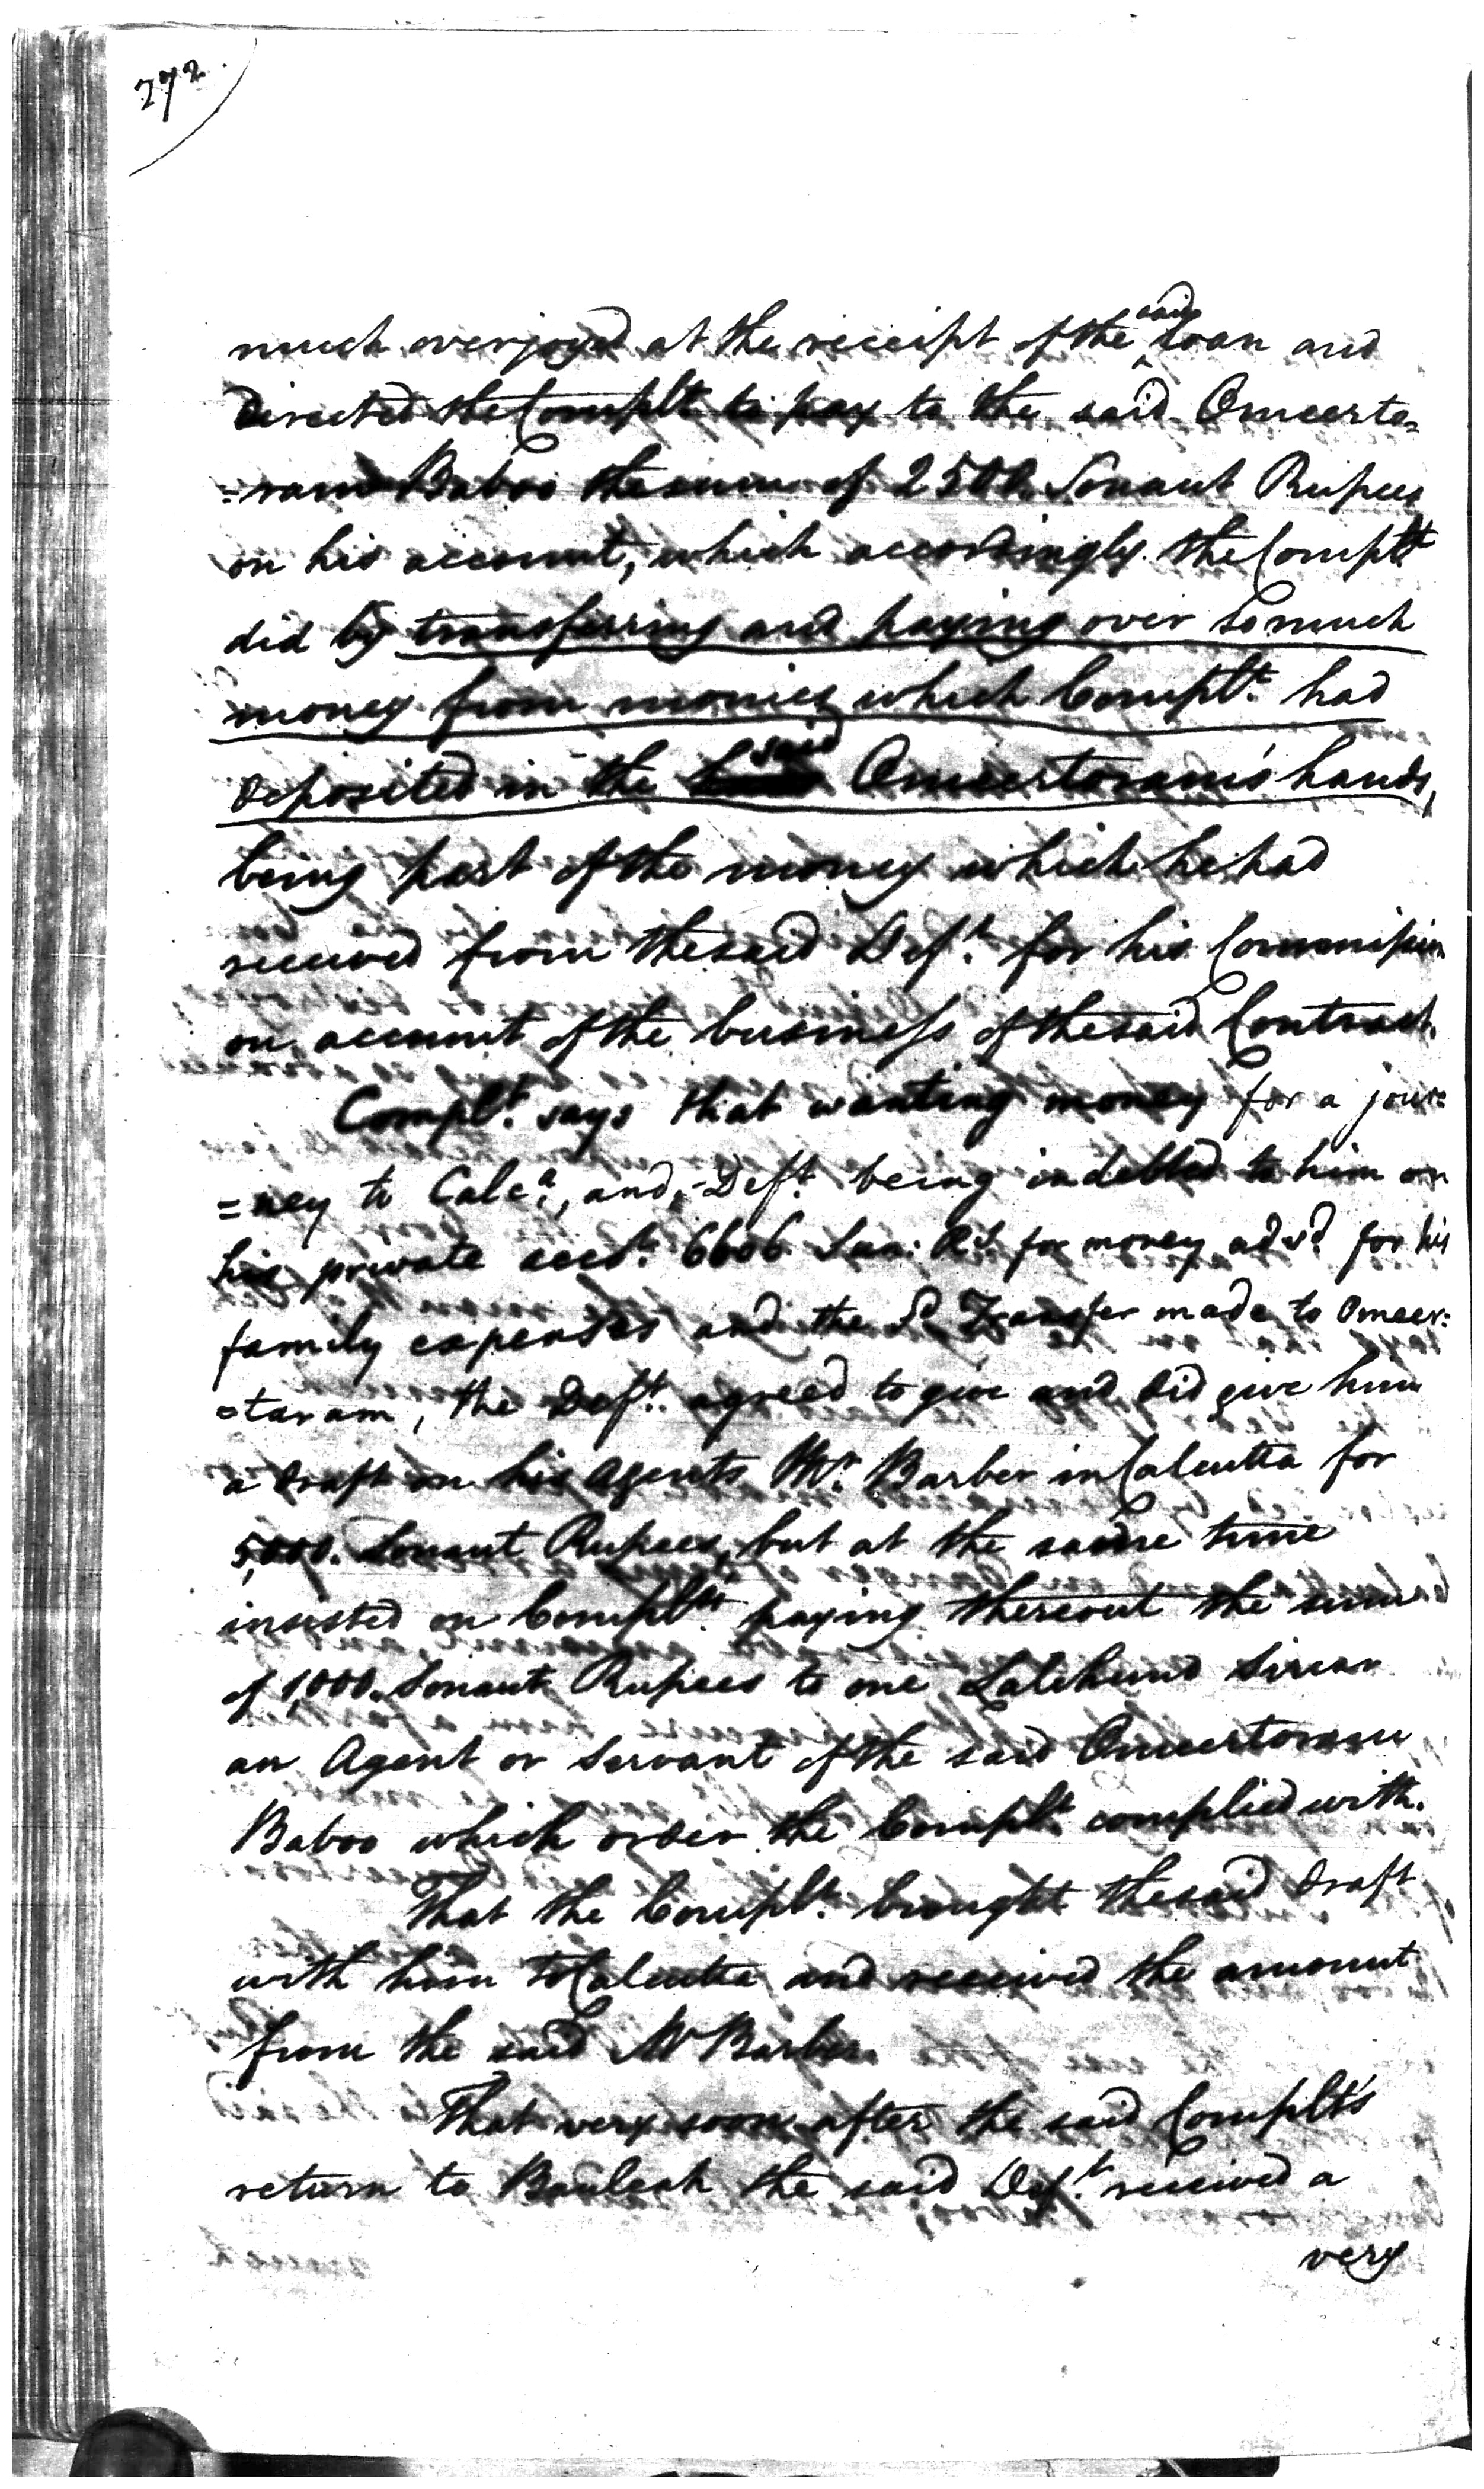 272.
much overjoyed at the receipt of the said Loan and
Directed the Complt to pay to the said Omeerto=
=ram Baboo the sum of 2500. Sonaut Rupees
on his account, which accordingly the Complt
did by transferring and paying over so much
money from monies which Complt. had
Deposited in the said Omeertoram's hands,
being part of the money which he had
received from the said Deft. for his Commission
on account of the business of the said Contract.
Complt. says that wanting money for a jour=
=ney to Calca., and, Deft. being indebted to him on
his private acct. 6606 Rs. for money advd. for his
family expenses and the Sd. Transfer made to Omeer=
=taram, the Deft. agreed to give and did give him
a Draft on his Agents Mr. Barber in Calcutta for
5,000. Sonaut Rupees, but at the same time
insisted on Complts. paying thereout the sum
of 1,000. Sonaut Rupees to one Sircar
an Agent or Servant of the said Omeertoram
Baboo which order the Complt complied with.
That the Complt. brought the said Draft
with him to Calcutta and received the amount
from the said Mr Barber.
That very soon after the said Complts
return to Bauleah the said Deft. received a
very